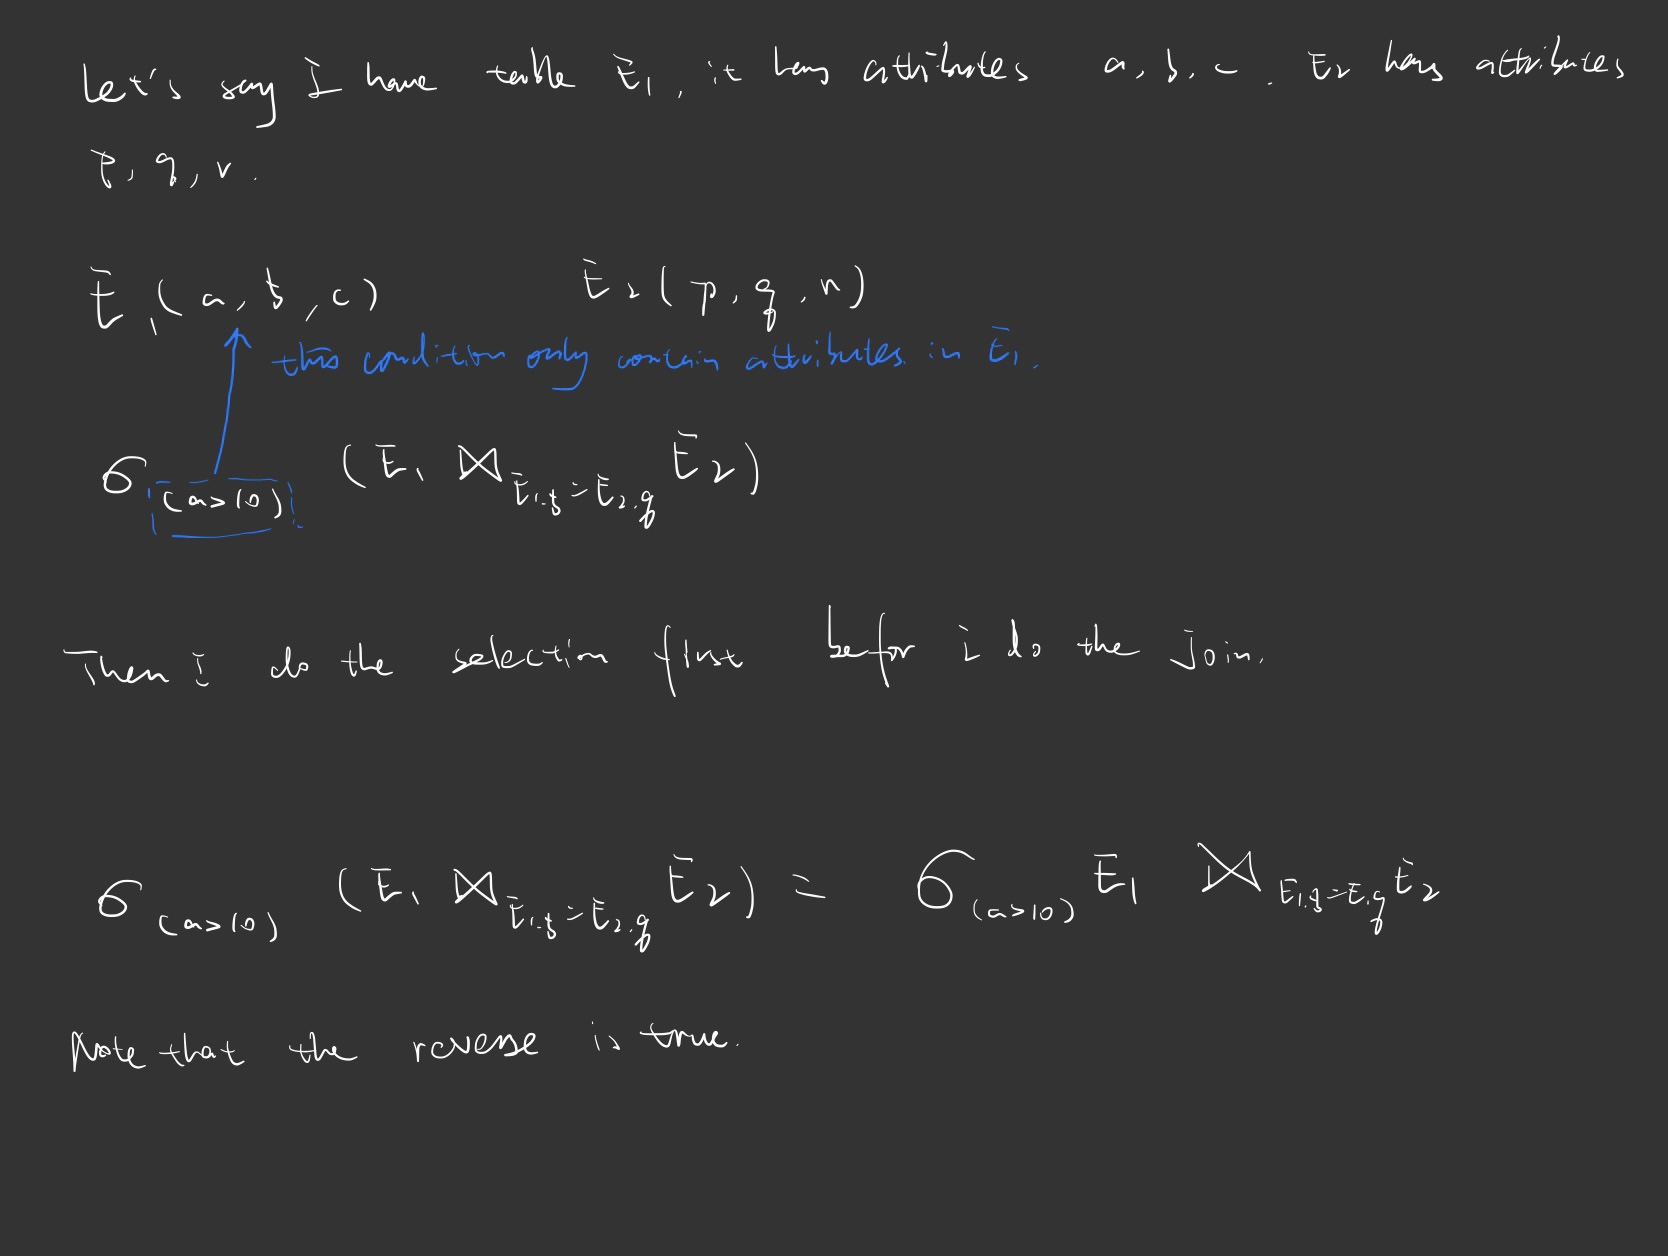 Let's say I have table E1, it has attributes a, b, c. E2 has attributes
p, q, r.
E1(a, b, c) E2(p, q, r)
this condition only contain attributes in E1.
σ(a>10) (E1 ⋈E1.b=E2.q E2)
Then I do the selection first befor i do the join.
σ(a>10) (E1 ⋈E1.b=E2.q E2) = σ(a>10) E1 ⋈E1.b=E.q E2
Note that the reverse is true.